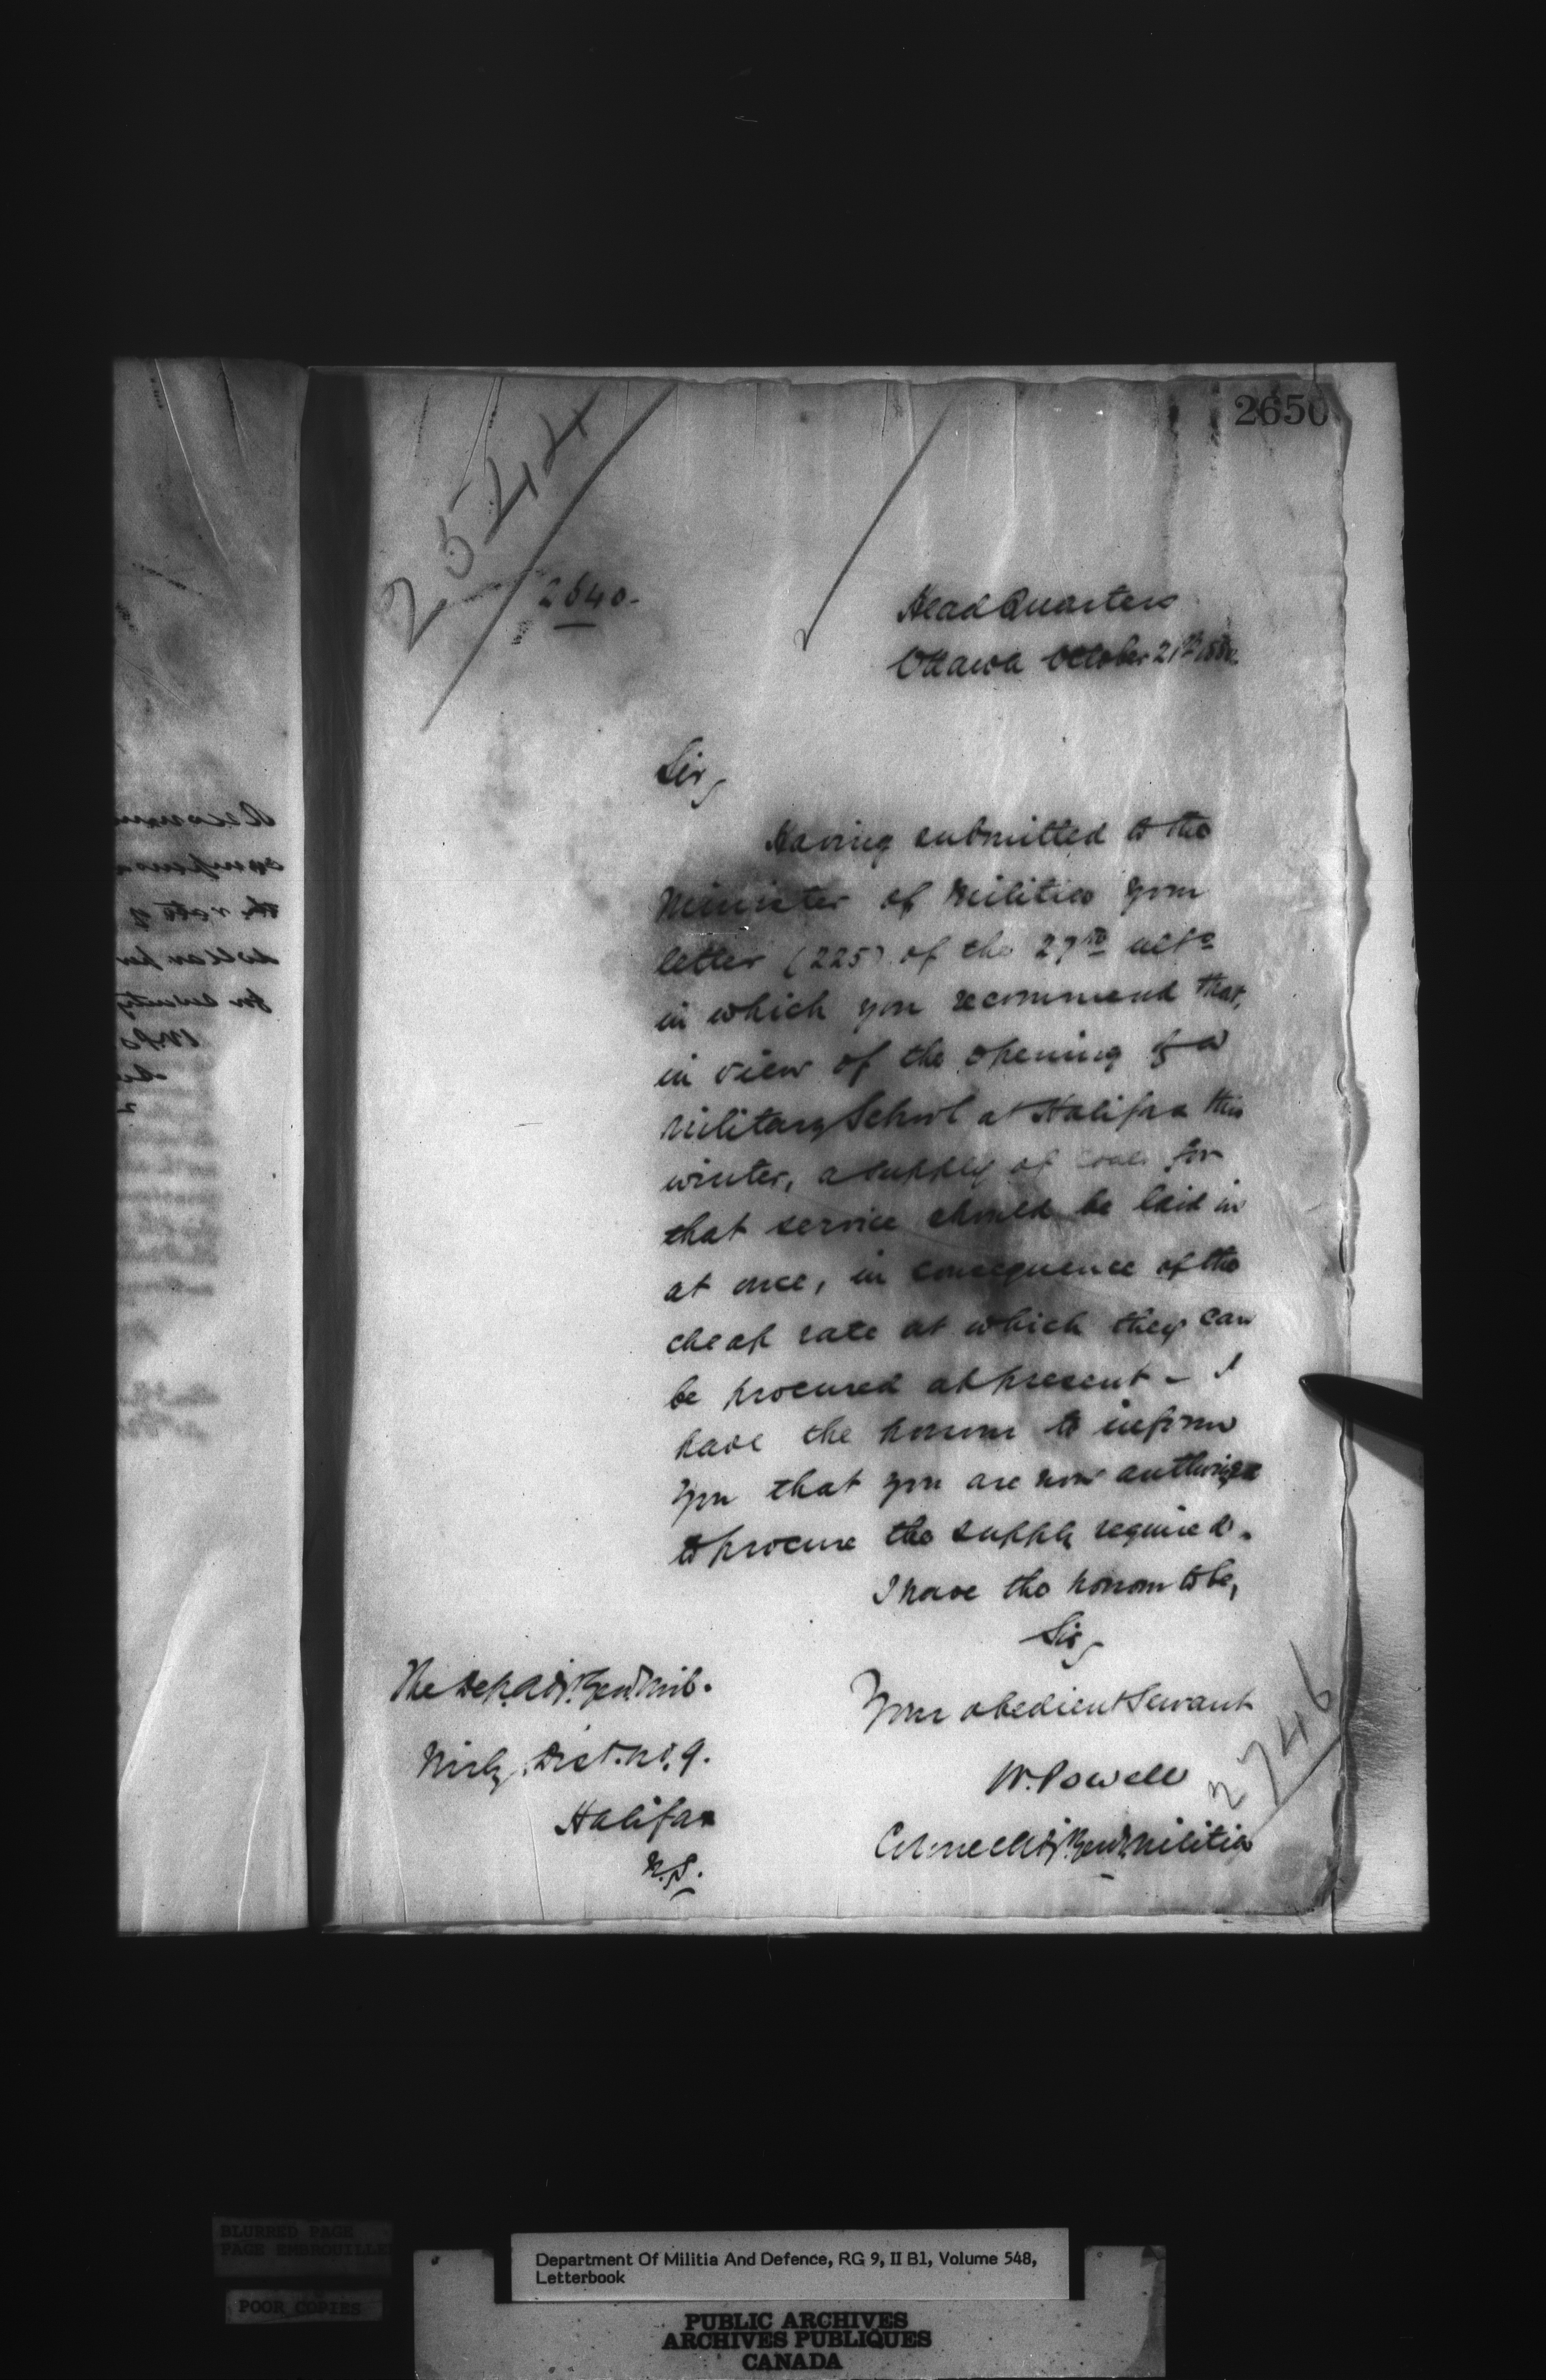 2650
2544
2640-
Head Quarters
Ottawa October 21st
Sir,
Having submitted to the
Minister of Militia your
letter (225) of the 27th ulto
in which you recommend that,
in view of the opening of a
Military School at Halifax this
winter, a supply of coals for
that service should be laid in
at once, in consequence of the
cheap rate at which they can
be procured at present - I
have the honour to inform
you that you are now authorized
to procure the supply required.
I have the honour to be,
Sir,
Your obedient Servant
W. Powell
Colonel Adjt. Genl. Militia
2746
The Dep. Adjt. Genl. Mil.
Mily. Dist. No. 9.
Halifax
N.S.
BLURRED PAGE
PAGE EMBROUILLE
POOR COPIES
Department Of Militia And Defence, RG 9, II B1, Volume 548,
Letterbook
PUBLIC ARCHIVES
ARCHIVES PUBLIQUES
CANADA